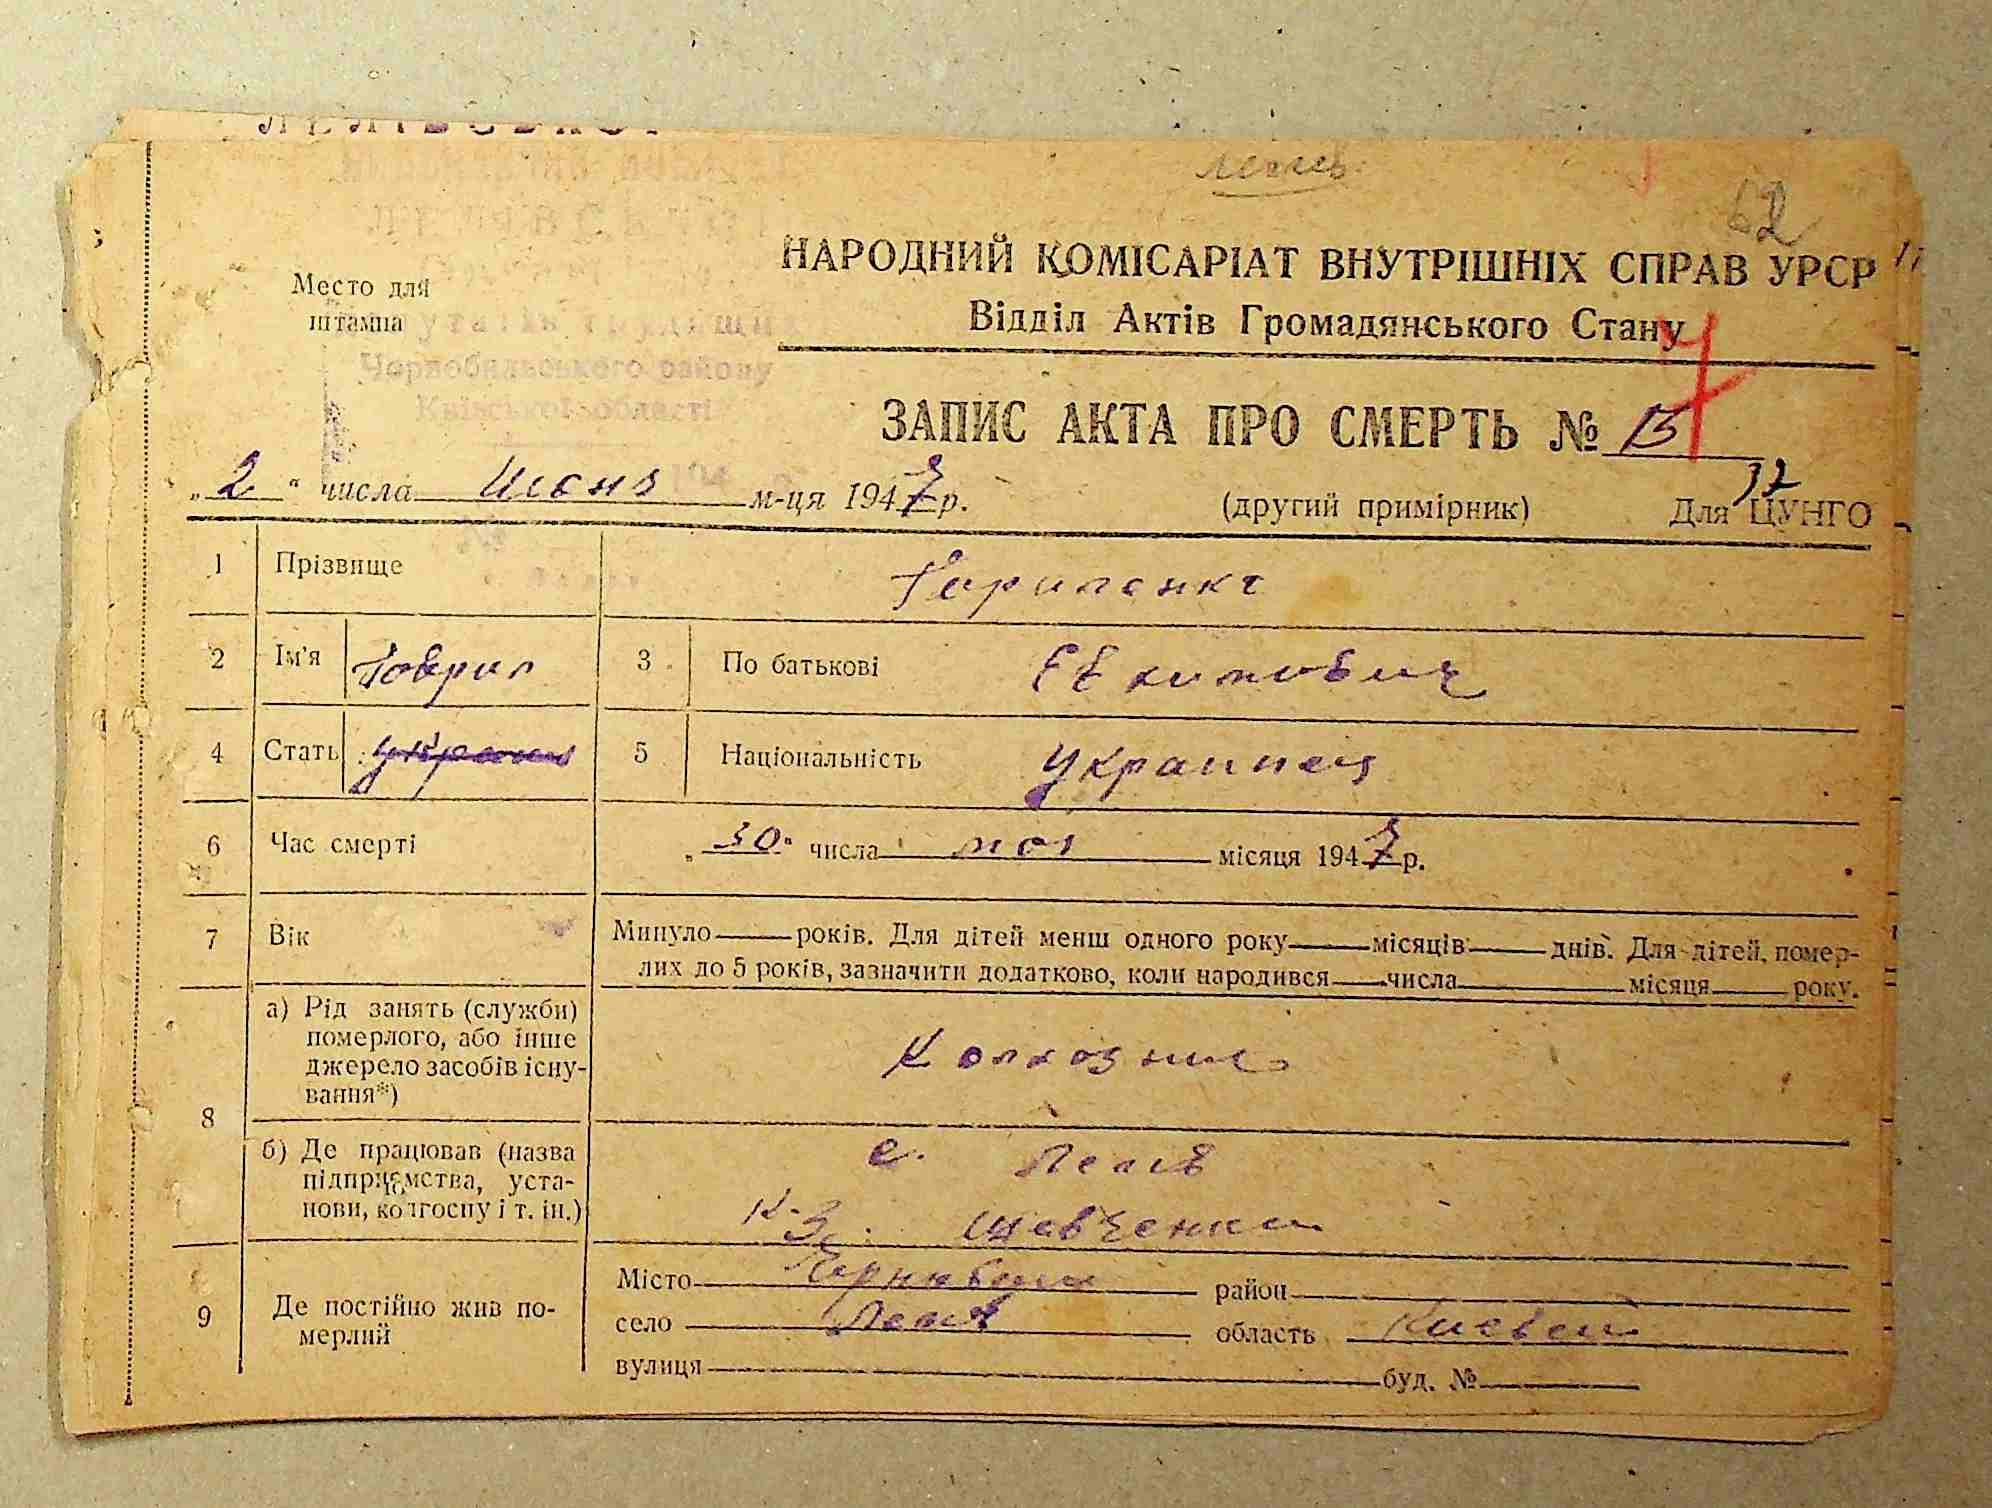 лелів
62
НАРОДНИЙ КОМІСАРІАТ ВНУТРІШНІХ СПРАВ УРСР
Відділ Актів Громадянського Стану
Место для
штампа
Чорнобильського району
Київської області
ЗАПИС АКТА ПРО СМЕРТЬ № 13
„2“ числа Июня м-ця 1947 р. (другий примірник) Для ЦУНГО
32
1 Прізвище Гориленко
2 Ім'я Говрил 3 По батькові
4 Стать украин 5 Національність Украинец
6 Час смерті „30“ числа мая місяця 1947 р.
7 Вік Минуло років. Для дітей менш одного року місяців днів. Для дітей, помер-
лих до 5 років, зазначити додатково, коли народився числа місяця року.
8 а) Рід занять (служби)
померлого, або інше
джерело засобів існу-
вання*)
Колхозник
б) Де працював (назва
підприємства, уста-
нови, колгоспу і т. ін.)
с. Лелів
К-З. Шевченка
9 Де постійно жив по-
мерлий
Місто район
село Лелів область Киевск
вулиця буд. №